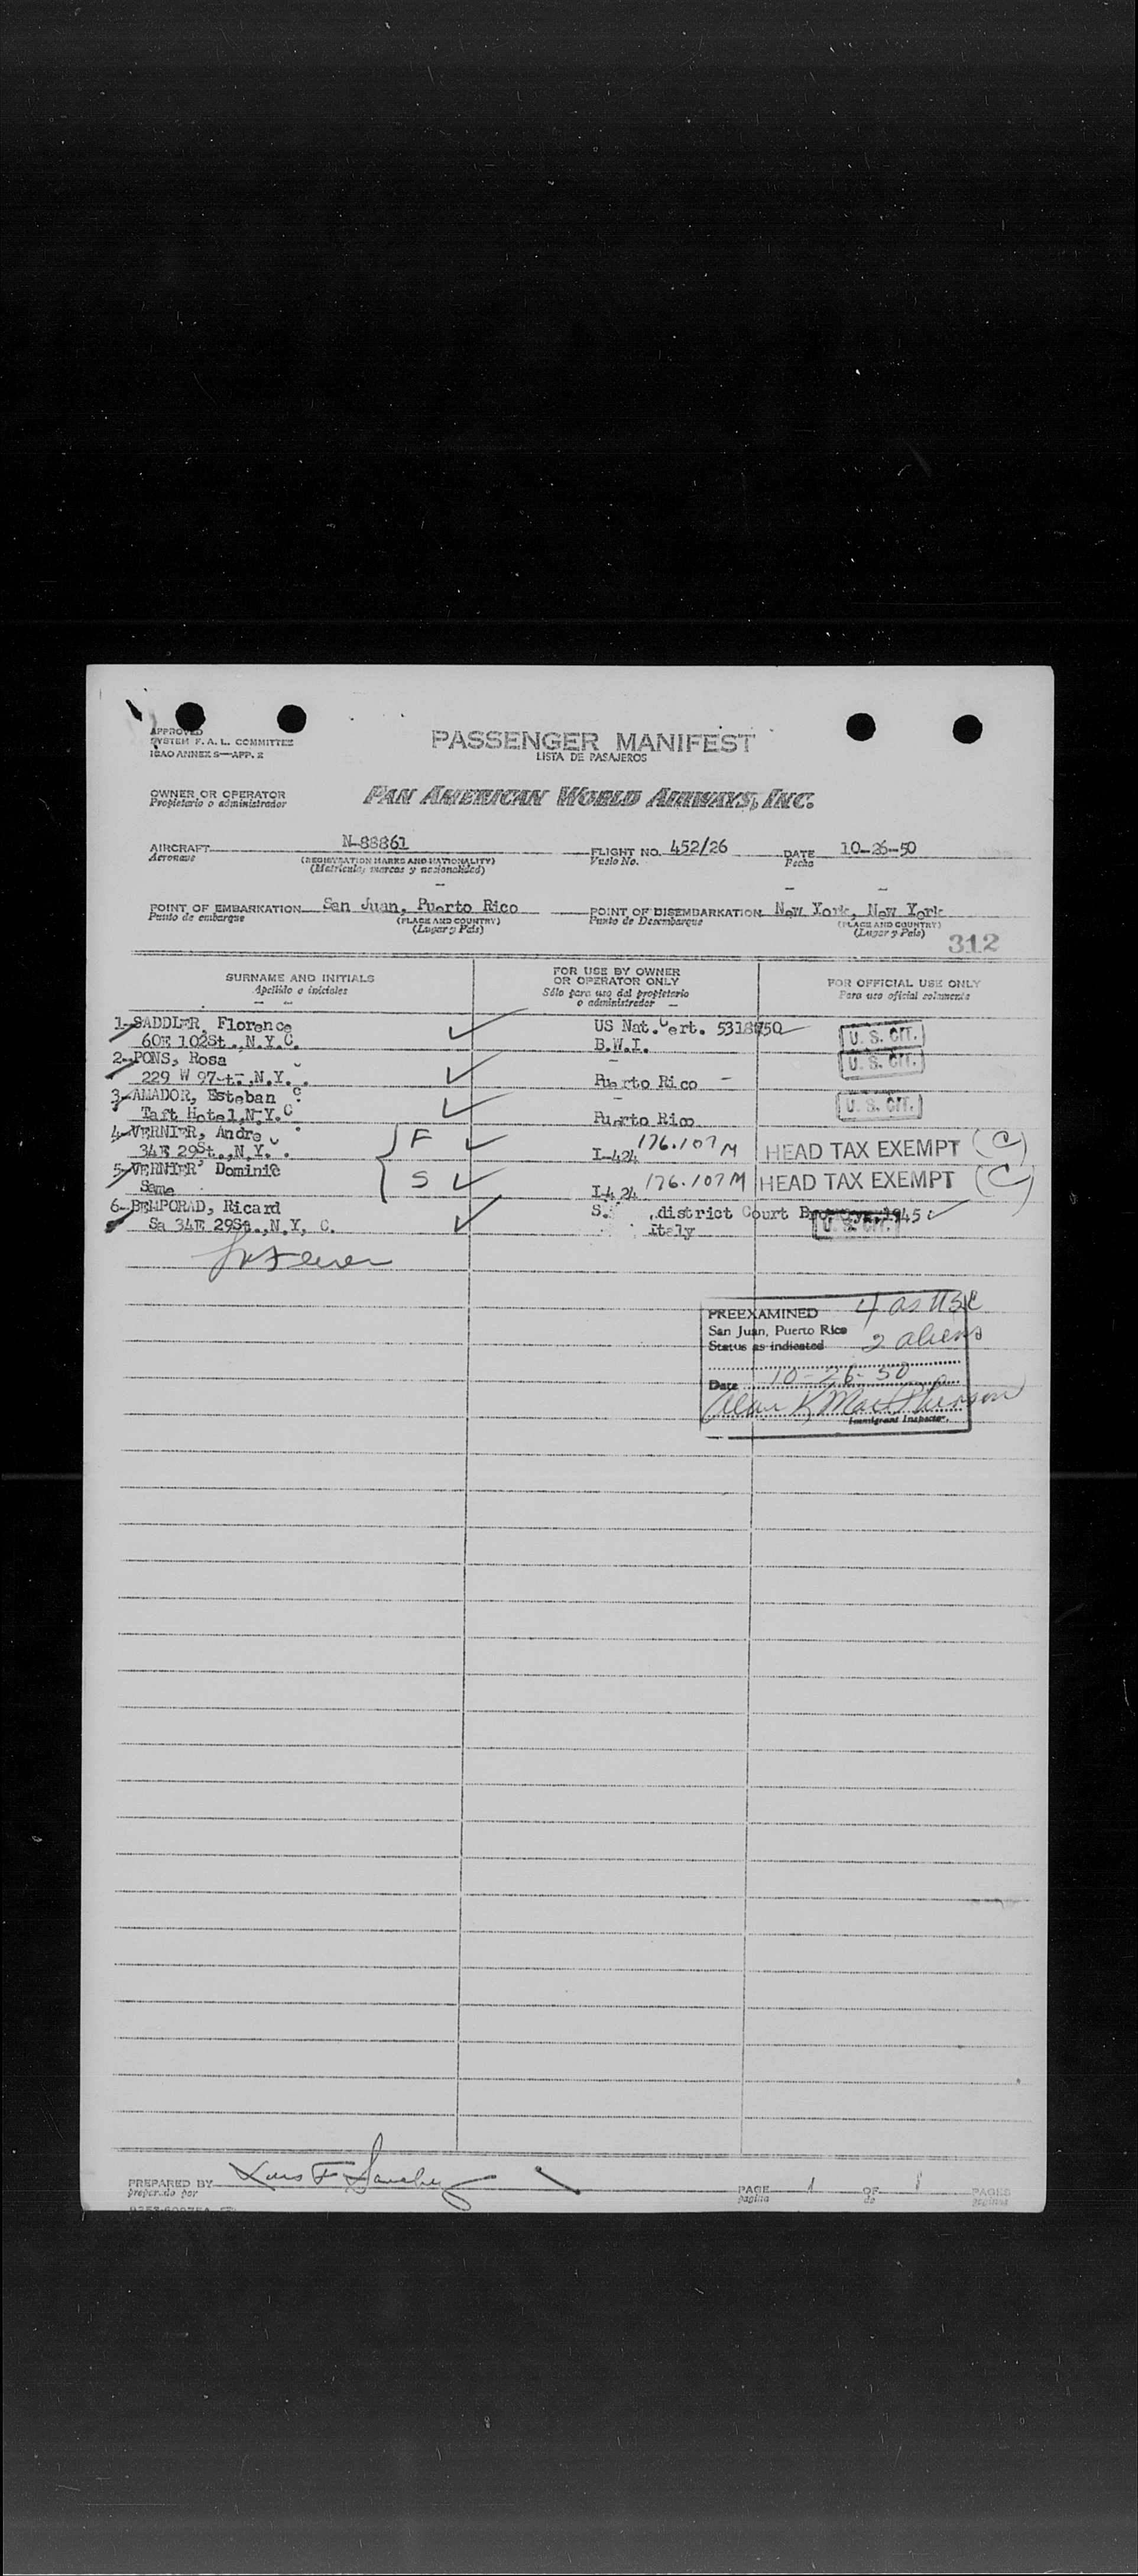 APPROVED
SYSTEM F. A. L. COMMITTEE
ICAO ANNEX 9—APP. 2
PASSENGER MANIFEST
LISTA DE PASAJEROS
OWNER OR OPERATOR
Propietario o administrador
PAN AMERICAN WORLD AIRWAYS, INC.
AIRCRAFT N-88861 FLIGHT NO. 452/26 DATE 10-26-50
Aeronave (REGISTRATION MARKS AND NATIONALITY) Vuelo No. Fecha
(Matricula, marcas y nacionalidad)
POINT OF EMBARKATION San Juan, Puerto Rico POINT OF DISEMBARKATION New York, New York
Punto de embarque (PLACE AND COUNTRY) Punto de Desembarque (PLACE AND COUNTRY)
(Lugar y Pais) (Lugar y Pais)
312
SURNAME AND INITIALS
Apellido e iniciales
FOR USE BY OWNER
OR OPERATOR ONLY
Sólo para uso del propietario
o administrador
FOR OFFICIAL USE ONLY
Para uso oficial solamente
1-SADDLER, Florence US Nat. Cert. 5318750
60E 102St., N.Y.C. B.W.I. U. S. CIT.
2-PONS, Rosa U. S. CIT.
229 W 97 t., N.Y. Puerto Rico
3-AMADOR, Esteban
Taft Hotel, N.Y.C Puerto Rico U. S. CIT.
4-VERNIER, Andre F
34E 29St., N.Y. I-424 176.107 M HEAD TAX EXEMPT (C)
5-VERNIER Dominic S
Same I-424 176.107 M HEAD TAX EXEMPT (C)
6-BEMPORAD, Ricard S. district Court 1945
Sa 34E 29St., N.Y, C. Italy U. S. CIT.
PREEXAMINED 4 as USC
San Juan, Puerto Rico
Status as indicated 2 aliens
Date 10-26-50
Immigrant Inspector.
PREPARED BY Luis F Sanchez PAGE 1 OF 1 PAGES
preparado por pagina de paginas